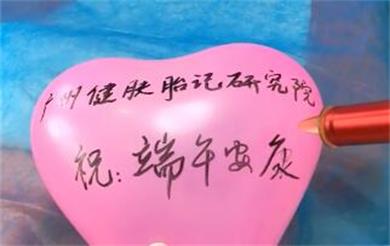 广州健肤胎记研究院
祝：端午安康